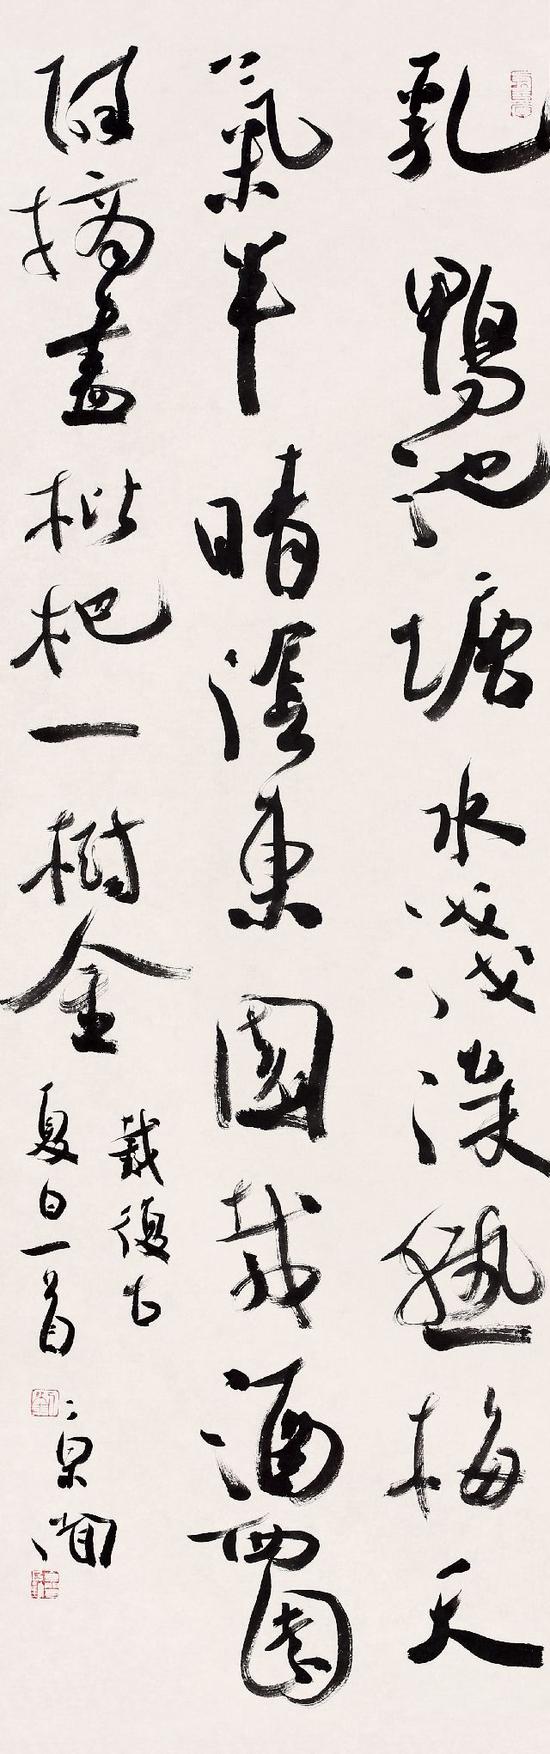 乳鴨池塘水淺深熟梅天
氣半晴陰東園載酒西園
醉摘盡枇杷一樹金
戴復古
夏日一首